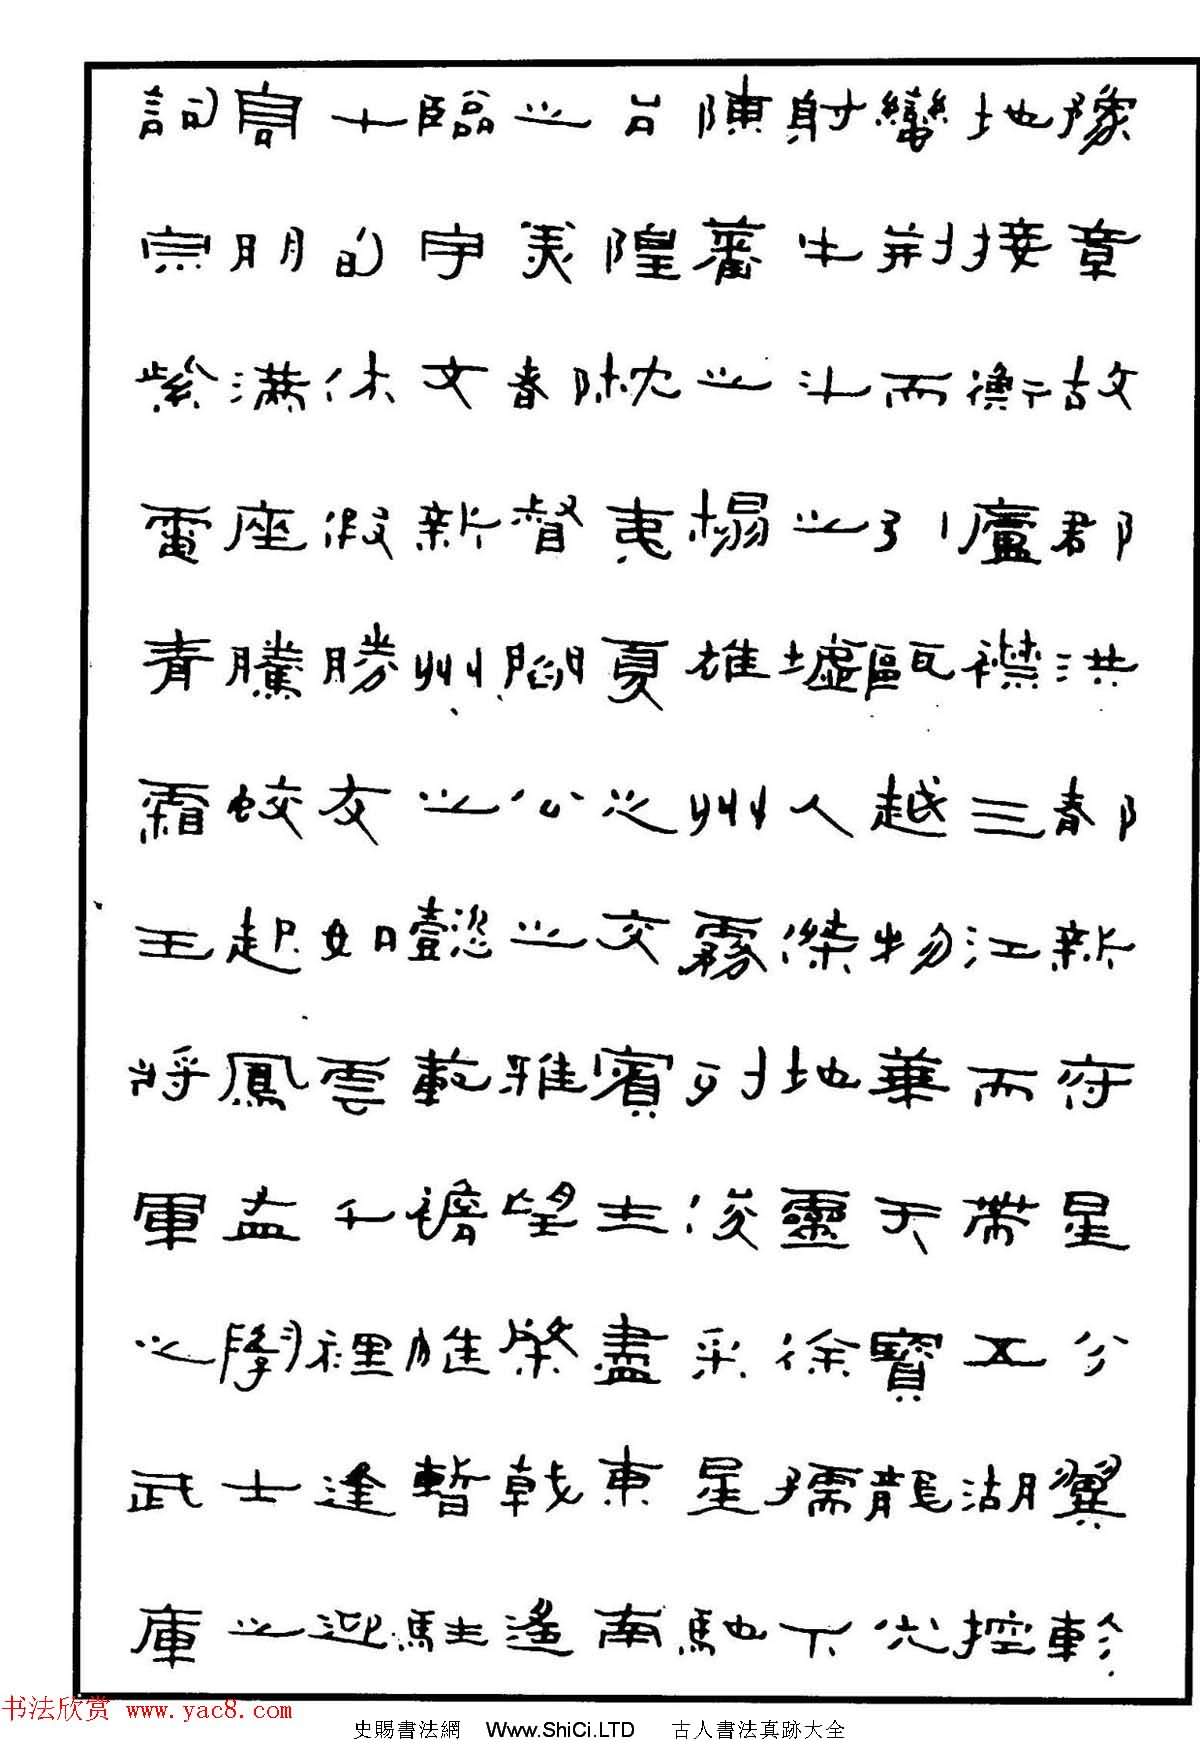 豫章故郡洪都新府星分翼軫
地接衡廬襟三江而帶五湖控
蠻荊而引甌越物華天寶龍光
射牛斗之墟人傑地靈徐孺下
陳蕃之榻雄州霧列俊采星馳
台隍枕夷夏之交賓主盡東南
之美都督閻公之雅望棨戟遙
臨宇文新州之懿範襜帷暫駐
十旬休假勝友如雲千裡逢迎
高朋滿座騰蛟起鳳孟學士之
詞宗紫電青霜王將軍之武庫
书法欣赏 www.yac8.com
史賜書法網 Www.ShiCi.LTD 古人書法真跡大全